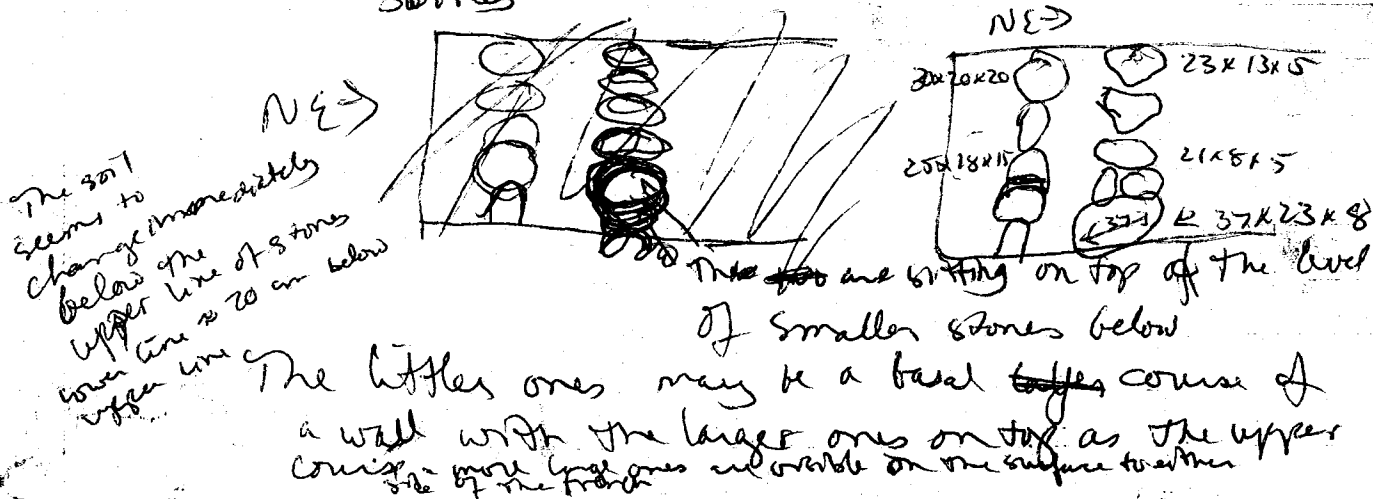 NE→
NE→
30x20x20
23x13x5
25x18x15
21x8x5
37
37x23x8
The soil
seems to
change immediately
below the
upper line of stones
lower line ≈ 20 cm below
upper line
are sitting on top of the level
of smaller stones below
The littler ones may be a basal course of
a wall with the larger ones on top as the upper
course - more large ones are visible on the surface to either
side of the trench